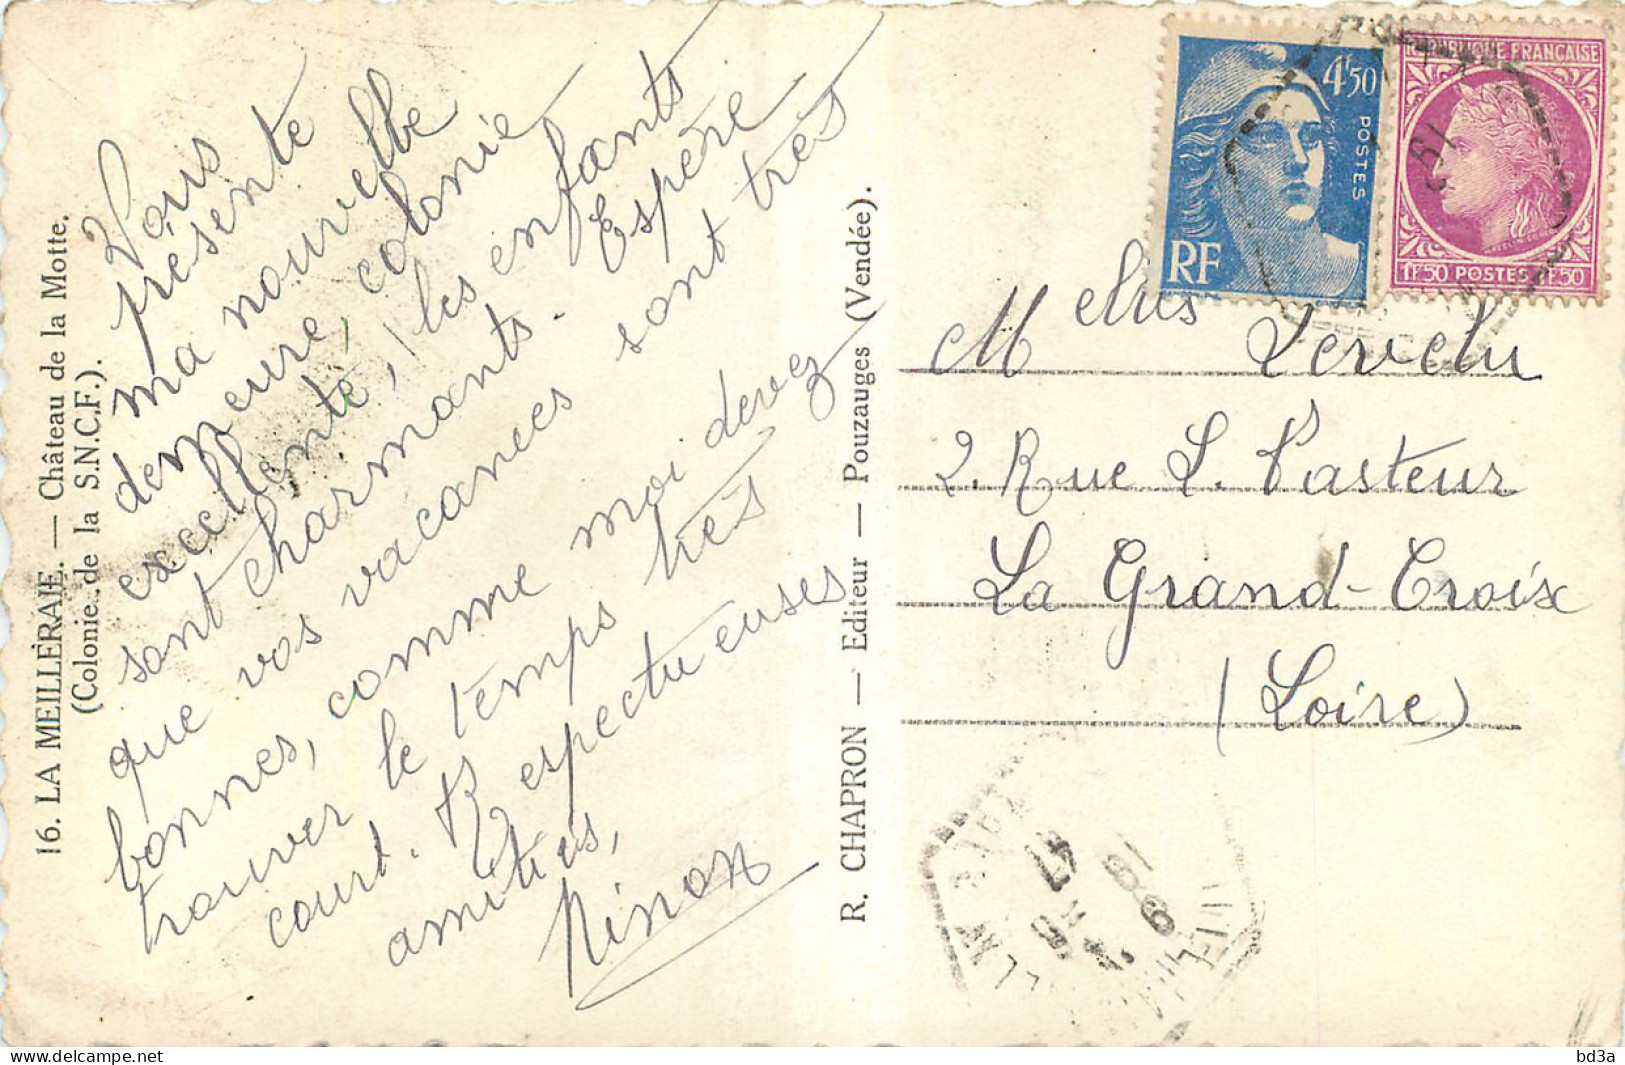 16. LA MEILLERAIE. — Château de la Motte.
(Colonie de la S.N.C.F.).
Vous
présente
ma nouvelle
demeure, colonie
excellente, les enfants
sont charmants. Espère
que vos vacances sont très
bonnes, comme moi devez
trouver le temps très
court. Respectueuses
amitiés,
Ninon
R. CHAPRON — Editeur — Pouzauges (Vendée).
4F50
POSTES
RF
REPUBLIQUE FRANÇAISE
1F50 POSTES 1F50
Melles
2. Rue L. Pasteur
La Grand-Croix
(Loire)
delcampe.net
bd3a